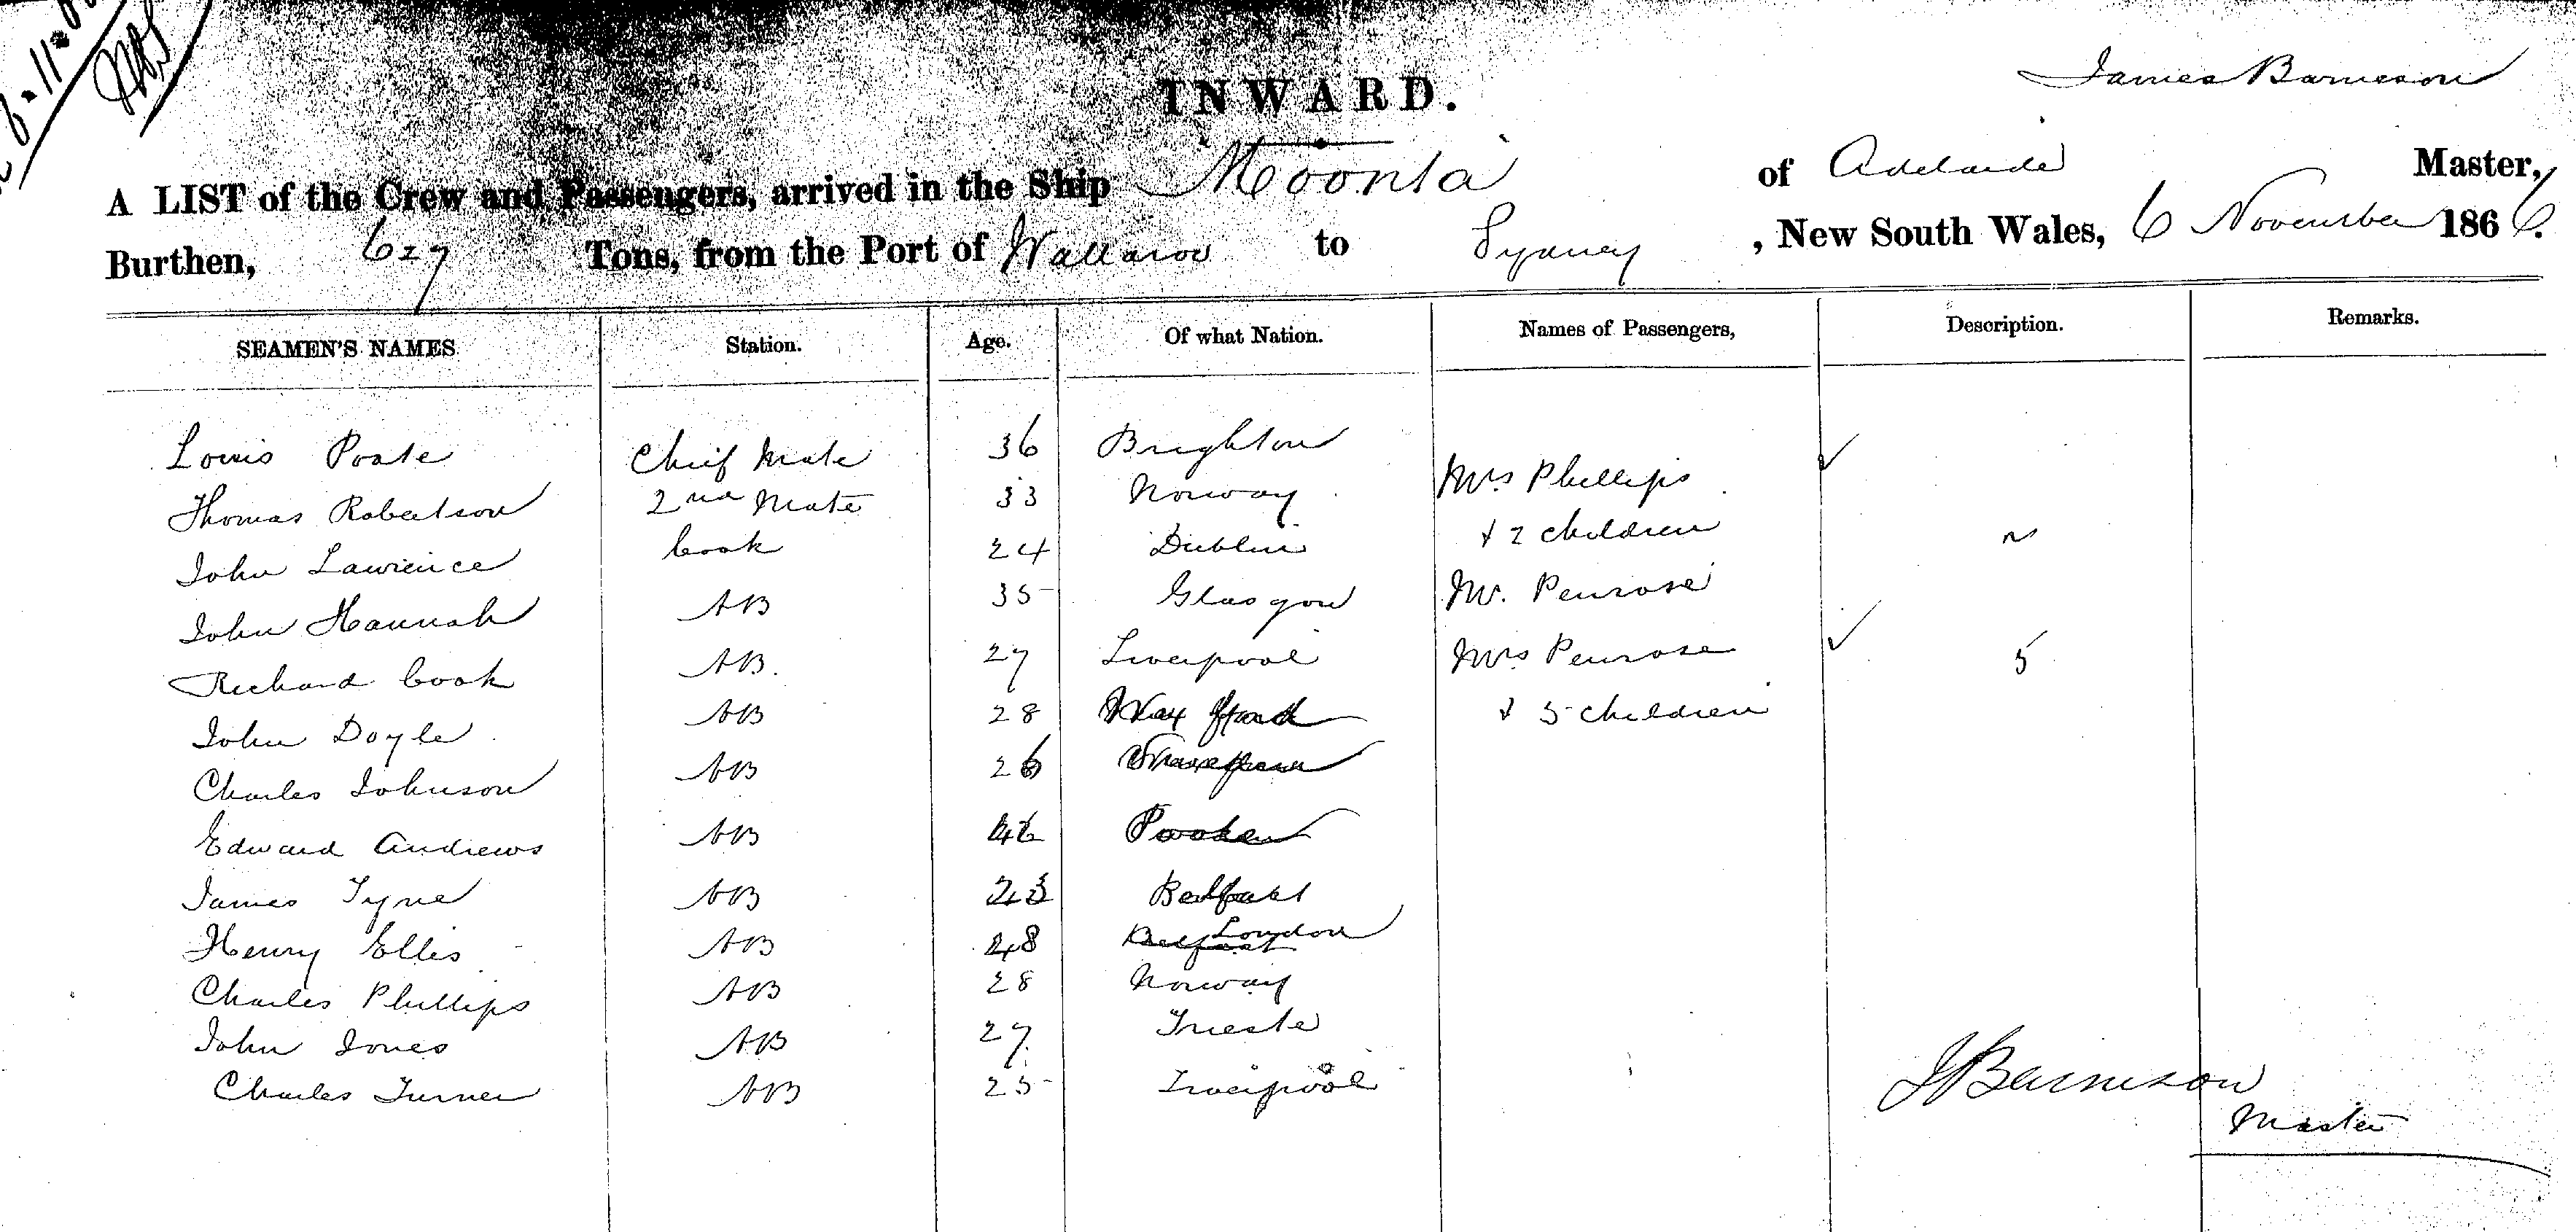 INWARD.
James Barneson
A LIST of the Crew and Passengers, arrived in the Ship Moonta of Adelaide Master,
Burthen, 627 Tons, from the Port of Wallaroo to Sydney, New South Wales, 6 November 1866.
SEAMEN'S NAMES Station. Age. Of what Nation. Names of Passengers, Description. Remarks.
Louis Poate Chief Mate 36 Brighton
Mrs Phillips ✓
Thomas Robertson 2nd Mate 33 Norway
John Lawrence Cook 24 Dublin + 2 children ~
John Hannah AB 35 Glasgow Mr. Penrose
Richard Cook AB. 27 Liverpool Mrs Penrose ✓ 5
John Doyle AB 28 + 5 children
Charles Johnson AB 26
Edward Andrews AB
James Tyne AB 23 Belfast
Henry Ellis AB 48 Belfast London
Charles Phillips AB 28 Norway
John Jones AB 27 Trieste
Charles Turner AB 25 Liverpool
J Barneson
Master